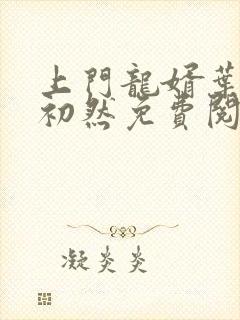 上門龍婿葉
初然免費閱
凝炎炎